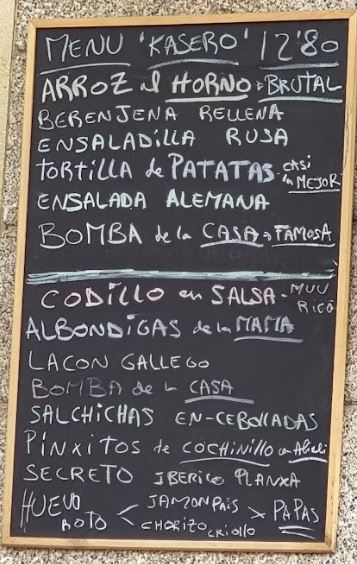 MENU 'KASERO' 12'80
ARROZ al HORNO → BRUTAL
BERENJENA RELLENA
ENSALADILLA RUSA
TORTILLA de PATATAS - CASI la MEJOR
ENSALADA ALEMANA
BOMBA de la CASA → FAMOSA
CODILLO en SALSA - MUU RICO
ALBONDIGAS de la MAMA
LACON GALLEGO
BOMBA de la CASA
SALCHICHAS EN-CEBOLLADAS
PINXITOS de COCHINILLO con Alioli
SECRETO IBERICO PLANXA
HUEVO ROTO < JAMON PAIS > PAPAS
CHORIZO CRIOLLO